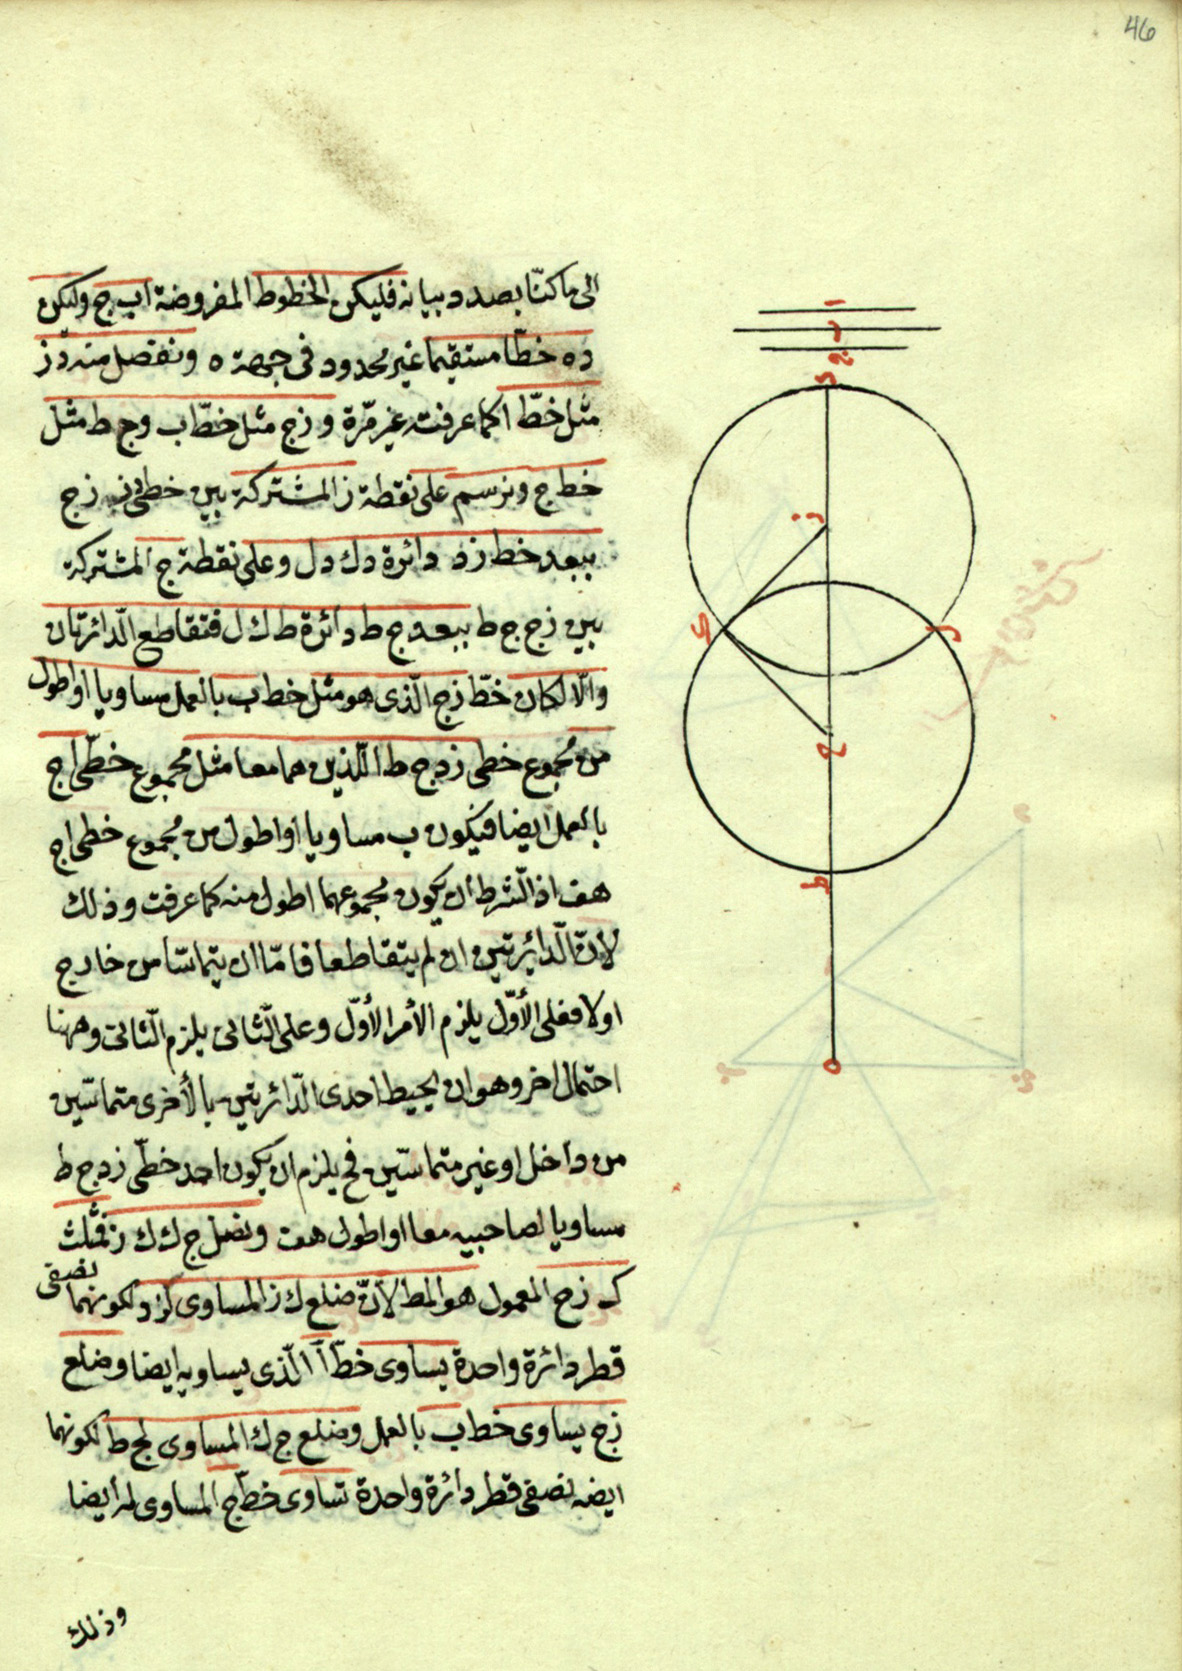 46
الى ما كنّا بصدد بيانه فليكن الخطوط المفروضة ا ب ج وليكن
د ه خطّا مستقيما غير محدود فى جهة ه ونفصل منه د ز
مثل خطّ ا كما عرفت غير مرّة و ز ج مثل خطّ ب و ج ط مثل
خط ج ونرسم على نقطة ز المشتركة بين خطى ز ج
ببعد خط ز د دائرة د ك د ل وعلى نقطة ج المشتركة
بين ز ج ج ط ببعد ج ط دائرة ط ك ل فتقاطع الدّائرتان
والّا لكان خطّ ز ج الّذى هو مثل خط ب بالعمل مساويا او اطول
من مجموع خطى ز د ج ط اللّذين هما معا مثل مجموع خطّى ا ج
بالعمل ايضا فيكون ب مساويا او اطول من مجموع خطى ا ج
هف اذ الشّرط ان يكون مجموعهما اطول منه كما عرفت وذلك
لانّ الدّائرتين ان لم يتقاطعا فامّا ان يتماسّا من خارج
او لا فعلى الأوّل يلزم الأمر الأوّل وعلى الثّانى يلزم الثّانى وههنا
احتمال اخر وهو ان يحيط احدى الدّائرتين بالأخرى متماسّين
من داخل او غير متماسّين فح يلزم ان يكون احد خطّى ز د ج ط
مساويا لصاحبيه معا او اطول هف ونصل ج ك ك ز فمثلث
ك ز ج المعمول هو المط لأنّ ضلع ك ز المساوى لز د لكونهما نصفى
قطر دائرة واحدة يساوى خطّ ا الّذى يساويه ايضا وضلع
ز ج يساوى خط ب بالعمل وضلع ج ك المساوى لج ط لكونهما
ايضا نصفى قطر دائرة واحدة تساوى خطّ ج المساوى له ايضا
وذلك
ا
ب
ج
د
ز
ك
ل
ج
ط
ه